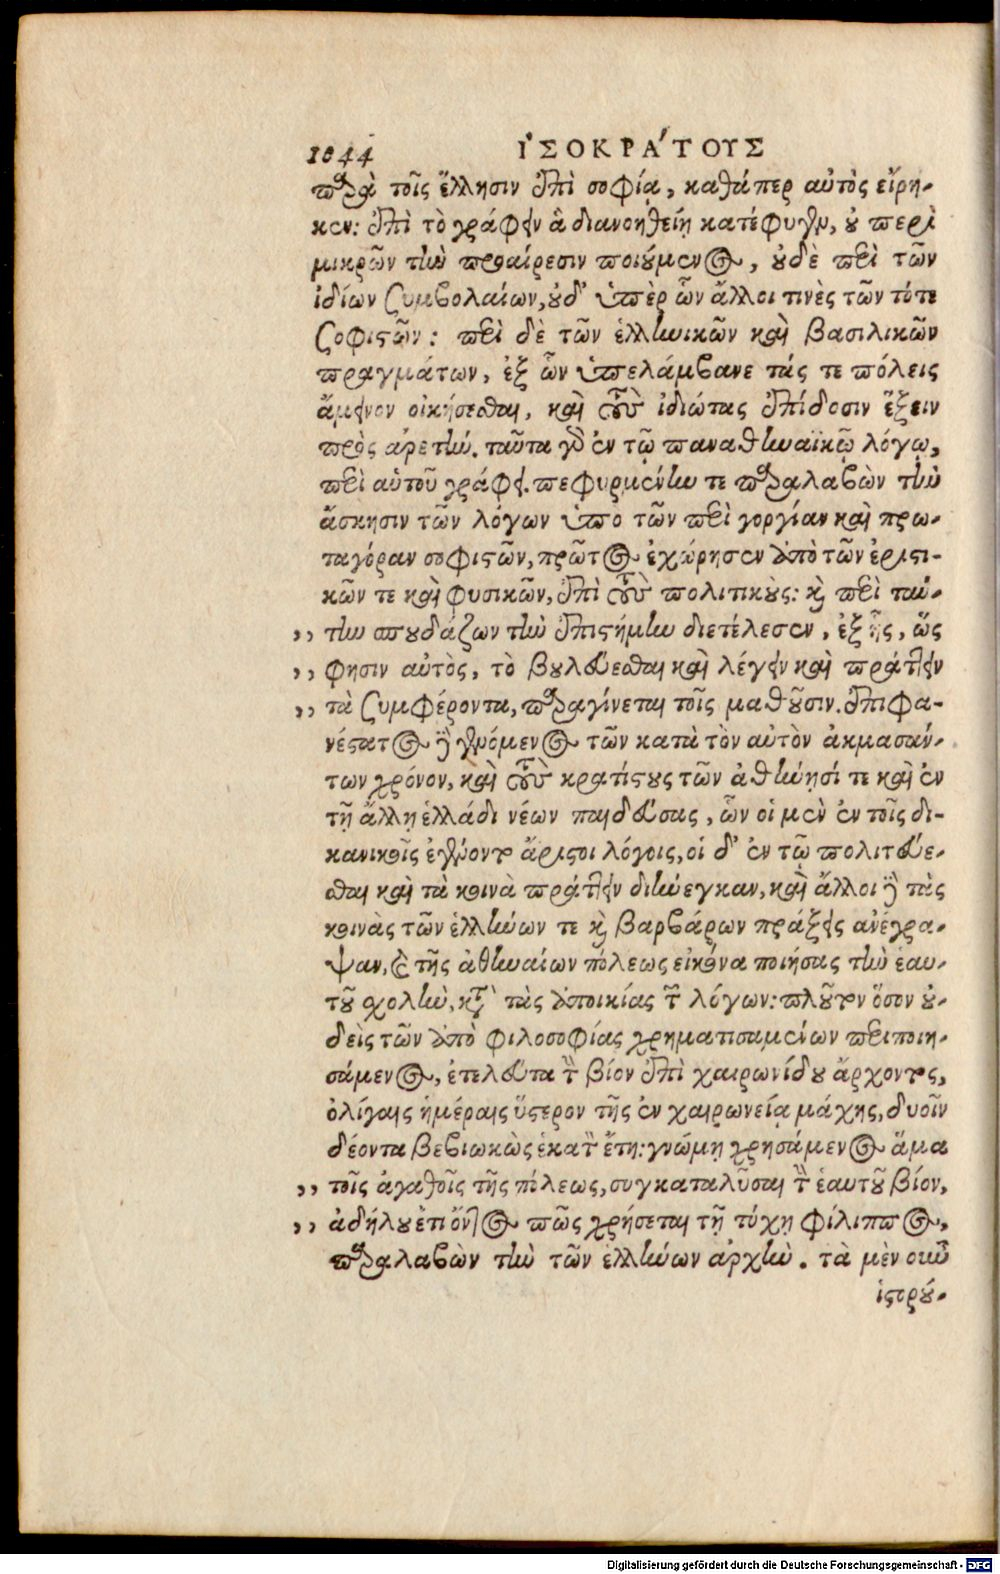 1044 ἸΣΟΚΡΆΤΟΥΣ
παρὰ τοῖς ἕλλησιν ἐπὶ σοφίᾳ, καθάπερ αὐτὸς εἴρη-
κεν: ἐπὶ τὸ γράφειν ἃ διανοηθείη κατέφυγεν, οὐ περὶ
μικρῶν τὴν προαίρεσιν ποιούμενος, οὐδὲ περὶ τῶν
ἰδίων συμβολαίων, οὐδ' ὑπὲρ ὧν ἄλλοι τινὲς τῶν τότε
σοφιστῶν: περὶ δὲ τῶν ἑλληνικῶν καὶ βασιλικῶν
πραγμάτων, ἐξ ὧν ὑπελάμβανε τάς τε πόλεις
ἄμεινον οἰκήσεσθαι, καὶ τοὺς ἰδιώτας ἐπίδοσιν ἕξειν
πρὸς ἀρετήν. ταῦτα γὰρ ἐν τῷ παναθηναϊκῷ λόγῳ,
περὶ αὑτοῦ γράφει. πεφυρμένην τε παραλαβὼν τὴν
ἄσκησιν τῶν λόγων ὑπο τῶν περὶ γοργίαν καὶ πρω-
ταγόραν σοφιστῶν, πρῶτος ἐχώρησεν ἀπὸ τῶν ἐριστι-
κῶν τε καὶ φυσικῶν, ἐπὶ τοὺς πολιτικούς: καὶ περὶ ταύ-
,, την σπουδάζων τὴν ἐπιστήμην διετέλεσεν, ἐξ ἧς, ὥς
,, φησιν αὐτὸς, τὸ βουλεύεσθαι καὶ λέγειν καὶ πράττειν
,, τὰ συμφέροντα, παραγίνεται τοῖς μαθοῦσιν. ἐπιφα-
νέστατος δὲ γενόμενος τῶν κατὰ τὸν αὐτὸν ἀκμασάν-
των χρόνον, καὶ τοὺς κρατίστους τῶν ἀθήνησί τε καὶ ἐν
τῇ ἄλλῃ ἑλλάδι νέων παιδεύσας, ὧν οἱ μὲν ἐν τοῖς δι-
κανικοῖς ἐγένοντο ἄριστοι λόγοις, οἱ δ' ἐν τῷ πολιτεύε-
σθαι καὶ τὰ κοινὰ πράττειν διήνεγκαν, καὶ ἄλλοι δὲ τὰς
κοινὰς τῶν ἑλλήνων τε καὶ βαρβάρων πράξεις ἀνέγρα-
ψαν, καὶ τῆς ἀθηναίων πόλεως εἰκόνα ποιήσας τὴν ἑαυ-
τοῦ σχολὴν, κατὰ τὰς ἀποικίας τῶν λόγων: πλοῦτον ὅσον οὐ-
δεὶς τῶν ἀπὸ φιλοσοφίας χρηματισαμένων περιποιη-
σάμενος, ἐτελεύτα τὸν βίον ἐπὶ χαιρωνίδου ἄρχοντος,
ὀλίγαις ἡμέραις ὕστερον τῆς ἐν χαιρωνείᾳ μάχης, δυοῖν
δέοντα βεβιωκὼς ἑκατὸν ἔτη: γνώμῃ χρησάμενος ἅμα
,, τοῖς ἀγαθοῖς τῆς πόλεως, συγκαταλῦσαι τὸν ἑαυτοῦ βίον,
,, ἀδήλου ἔτι ὄντος πῶς χρήσεται τῇ τύχῃ φίλιππος,
παραλαβὼν τὴν τῶν ἑλλήνων ἀρχήν. τὰ μὲν οὖν
ἱστορού-
Digitalisierung gefördert durch die Deutsche Forschungsgemeinschaft - DFG